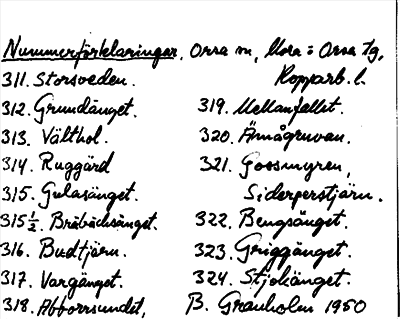 Nummerförklaringar. Orsa sn, Mora o Orsa tg,
Kopparb. l.
311. Storsveden.
312. Grundänget.
313. Välthol.
314. Ruggärd
315. Gulasänget.
315½. Bråbäcksänget.
316. Budtjärn.
317. Vargänget.
318. Abborrsundet,
319. Mellanfallet.
320. Ämågruvan.
321. Gossmyren,
Siderperstjärn.
322. Bengsänget.
323. Griggänget.
324. Stjokänget.
B. Granholm 1950